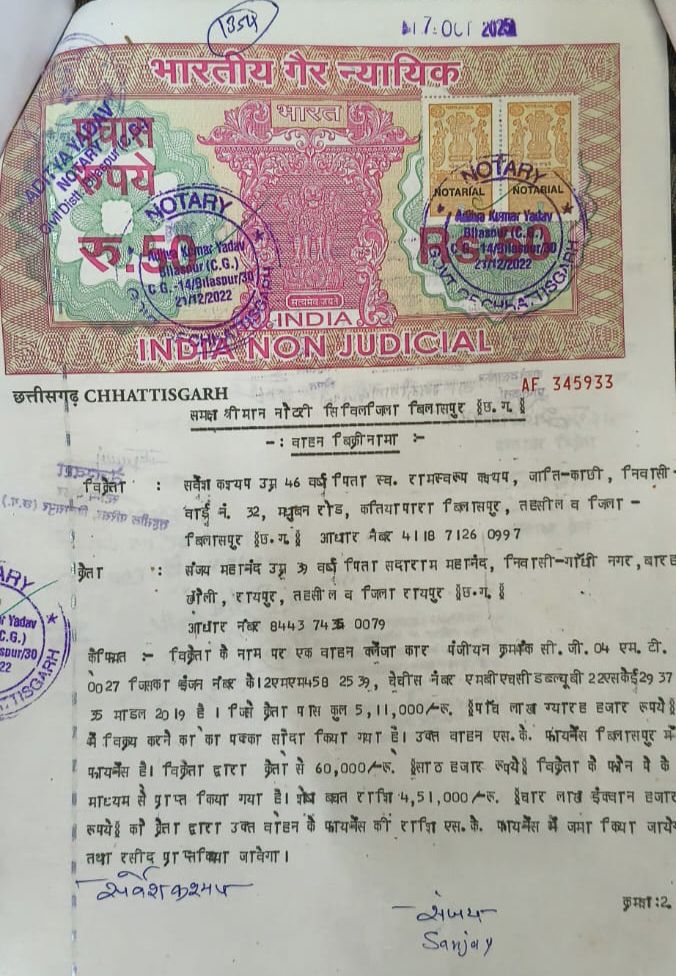 1354
17 OCT 2025
भारतीय गैर न्यायिक
भारत
पचास
रुपये
रु.50
Rs.50
ADITYA YADAV
NOTARY
Civil Distt. Bilaspur (C.G.)
NOTARIAL
NOTARIAL
NOTARY
Aditya Kumar Yadav
Bilaspur (C.G.)
C.G.-14/Bilaspur/30
21/12/2022
GOVT OF CHHATTISGARH
NOTARY
Aditya Kumar Yadav
Bilaspur (C.G.)
C.G.-14/Bilaspur/30
21/12/2022
GOVT OF CHHATTISGARH
सत्यमेव जयते
INDIA
INDIA NON JUDICIAL
छत्तीसगढ़ CHHATTISGARH
AF 345933
समक्ष श्रीमान नोटरी सिविल जिला बिलासपुर §छ.ग.§
-: वाहन बिक्रीनामा :-
विक्रेता : सर्वेश कश्यप उम्र 46 वर्ष पिता स्व. रामस्वरूप कश्यप, जाति-काछी, निवासी-
वार्ड नं. 32, मधुबन रोड, कतियापारा बिलासपुर, तहसील व जिला-
बिलासपुर §छ.ग.§ आधार नंबर 4118 7126 0997
क्रेता : संजय महानंद उम्र 39 वर्ष पिता सदाराम महानंद, निवासी-गांधी नगर, बारह
खोली, रायपुर, तहसील व जिला रायपुर §छ.ग.§
आधार नंबर 8443 0079
कैफियत :- विक्रेता के नाम पर एक वाहन कार पंजीयन क्रमांक सी.जी. 04 एम.टी.
0027 जिसका इंजन नंबर के12एमएम458 25 39, चेचीस नंबर एमबीएचसीडब्ल्यूबी 22एसकेई29 37
35 माडल 2019 है। जिसे क्रेता पास कुल 5,11,000/-रू. §पांच लाख ग्यारह हजार रूपये§
में विक्रय करने का का पक्का सौदा किया गया है। उक्त वाहन एस.के. फायनेंस बिलासपुर में
फायनेंस है। विक्रेता द्वारा क्रेता से 60,000/-रू. §साठ हजार रूपये§ विक्रेता के फोन पे के
माध्यम से प्राप्त किया गया है। शेष बचत राशि 4,51,000/-रू. §चार लाख इंक्वान हजार
रूपये§ को क्रेता द्वारा उक्त वाहन के फायनेंस की राशि एस.के. फायनेंस में जमा किया जाये
तथा रसीद प्राप्त किया जावेगा।
सर्वेश कश्यप
संजय
Sanjay
क्रमश:2.